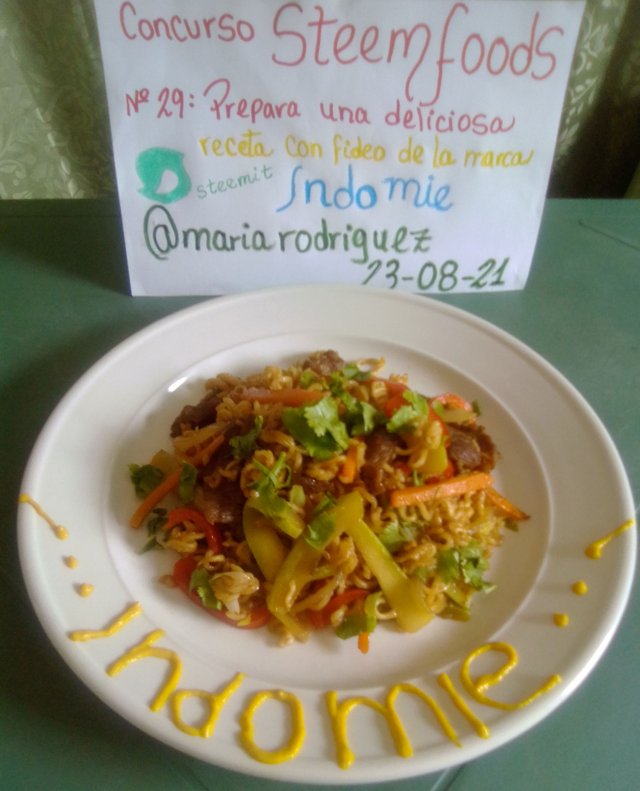 Concurso Steemfoods
Nº 29: Prepara una deliciosa
receta con fideo de la marca
steemit Indomie
@mariarodriguez
23-08-21
Indomie